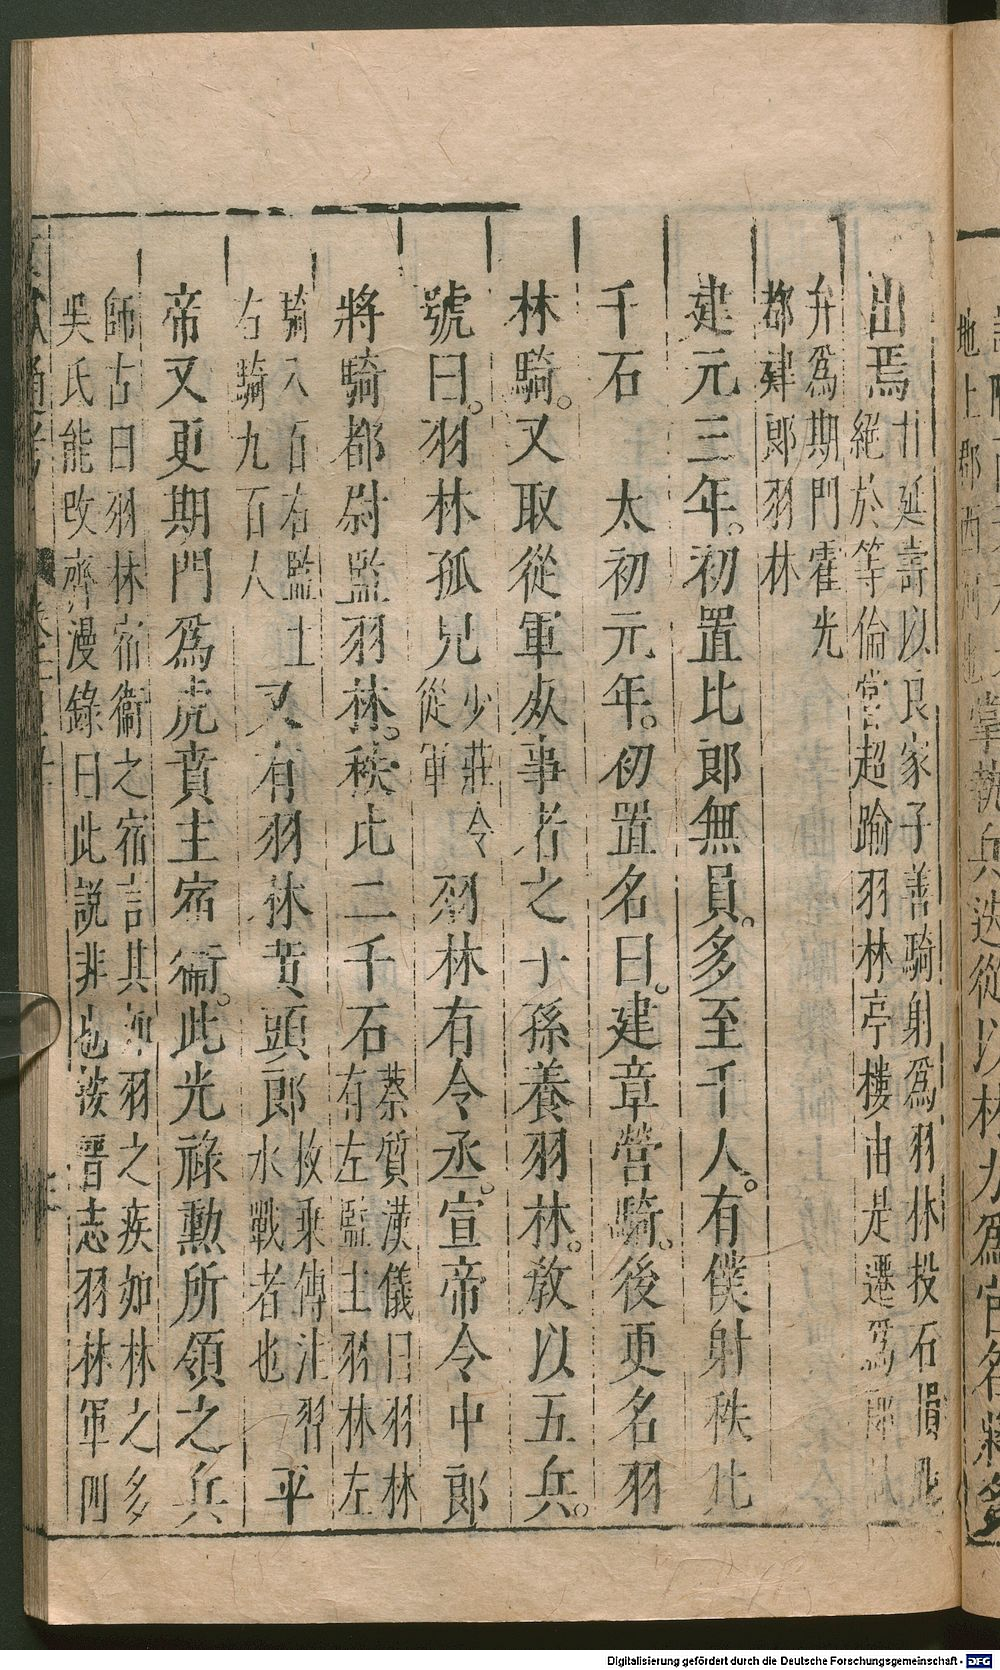 出焉
甘延壽以良家子善騎射爲羽林投石拔距
絕於等倫嘗超踰羽林亭樓由是遷爲郎試
弁爲期門霍光
郡建郎羽林
建元三年。初置比郎無員。多至千人。有僕射秩比
千石 太初元年。初置名曰。建章營騎。後更名羽
林騎。又取從軍死事者之子孫養羽林。教以五兵。
號曰。羽林孤兒
少莊令
從軍
羽林有令丞。宣帝令中郎
將騎都尉監羽林。秩比二千石
蔡質漢儀曰羽林
有左監主羽林左
騎八百右監主
右騎九百人
又有羽林黃頭郎
枚乘傳注習
水戰者也
平
帝又更期門爲虎賁主宿衞。此光祿勳所領之兵
師古曰羽林宿衞之宿言其如羽之疾如林之多
吳氏能改齊漫錄曰此説非也按晉志羽林軍四
地上郡西河
掌執兵送從以材力爲官名將多
Digitalisierung gefördert durch die Deutsche Forschungsgemeinschaft - DFG